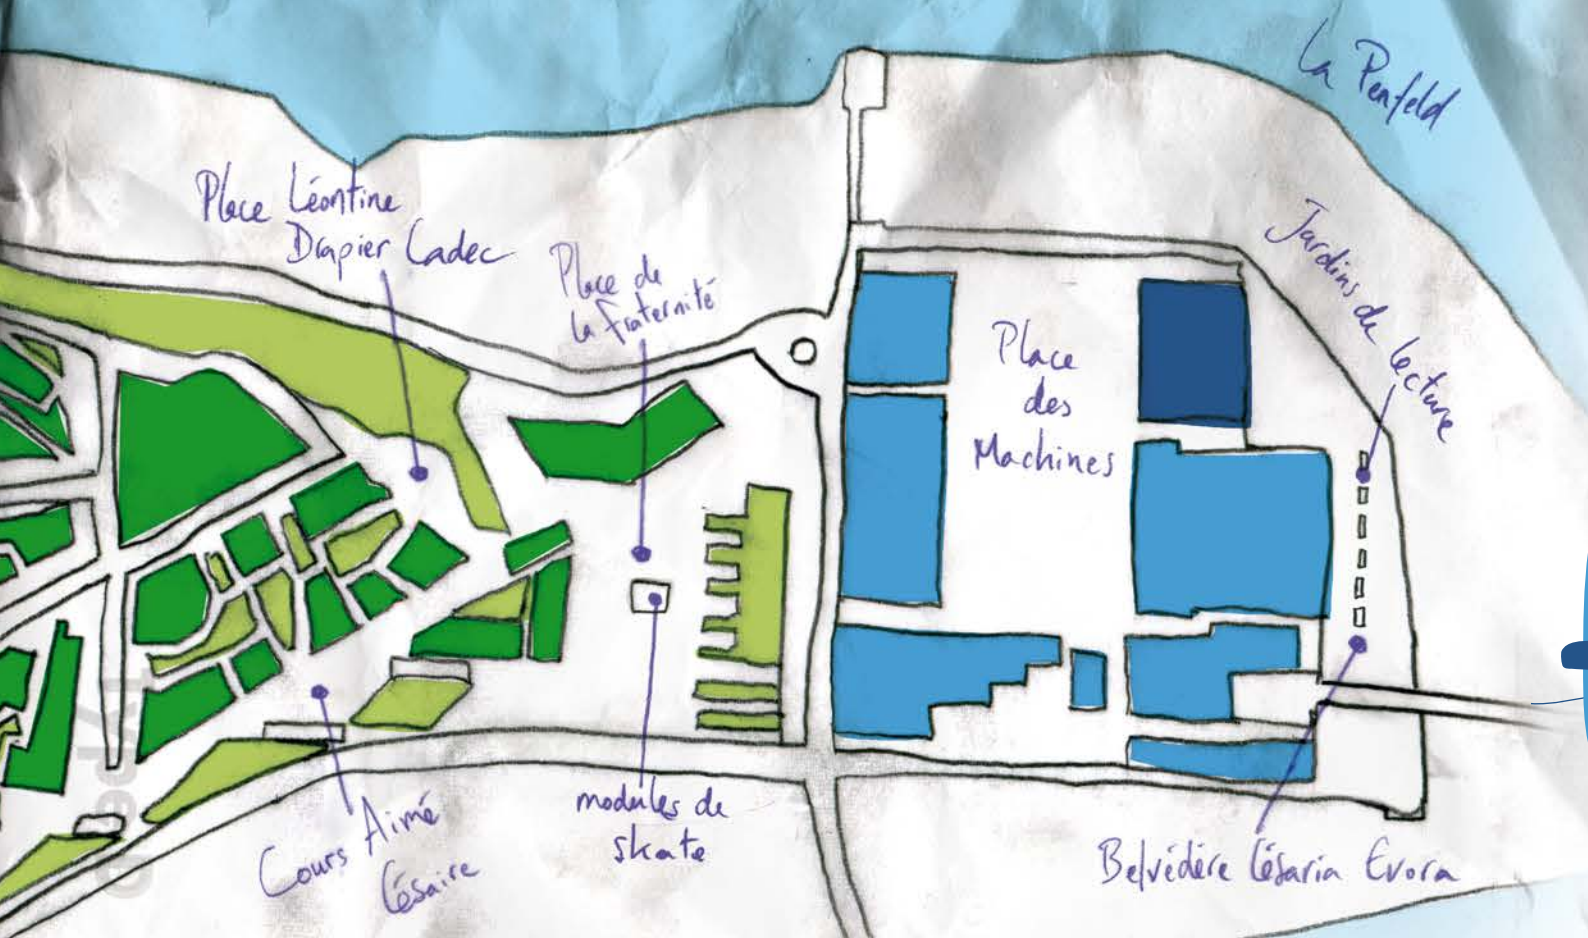 La Penfeld
Place Léontine
Drapier Cadec
Place de
la fraternité
Jardins de lecture
Place
des
Machines
Cours Aimé
Césaire
modules de
skate
Belvédère Césaria Evora